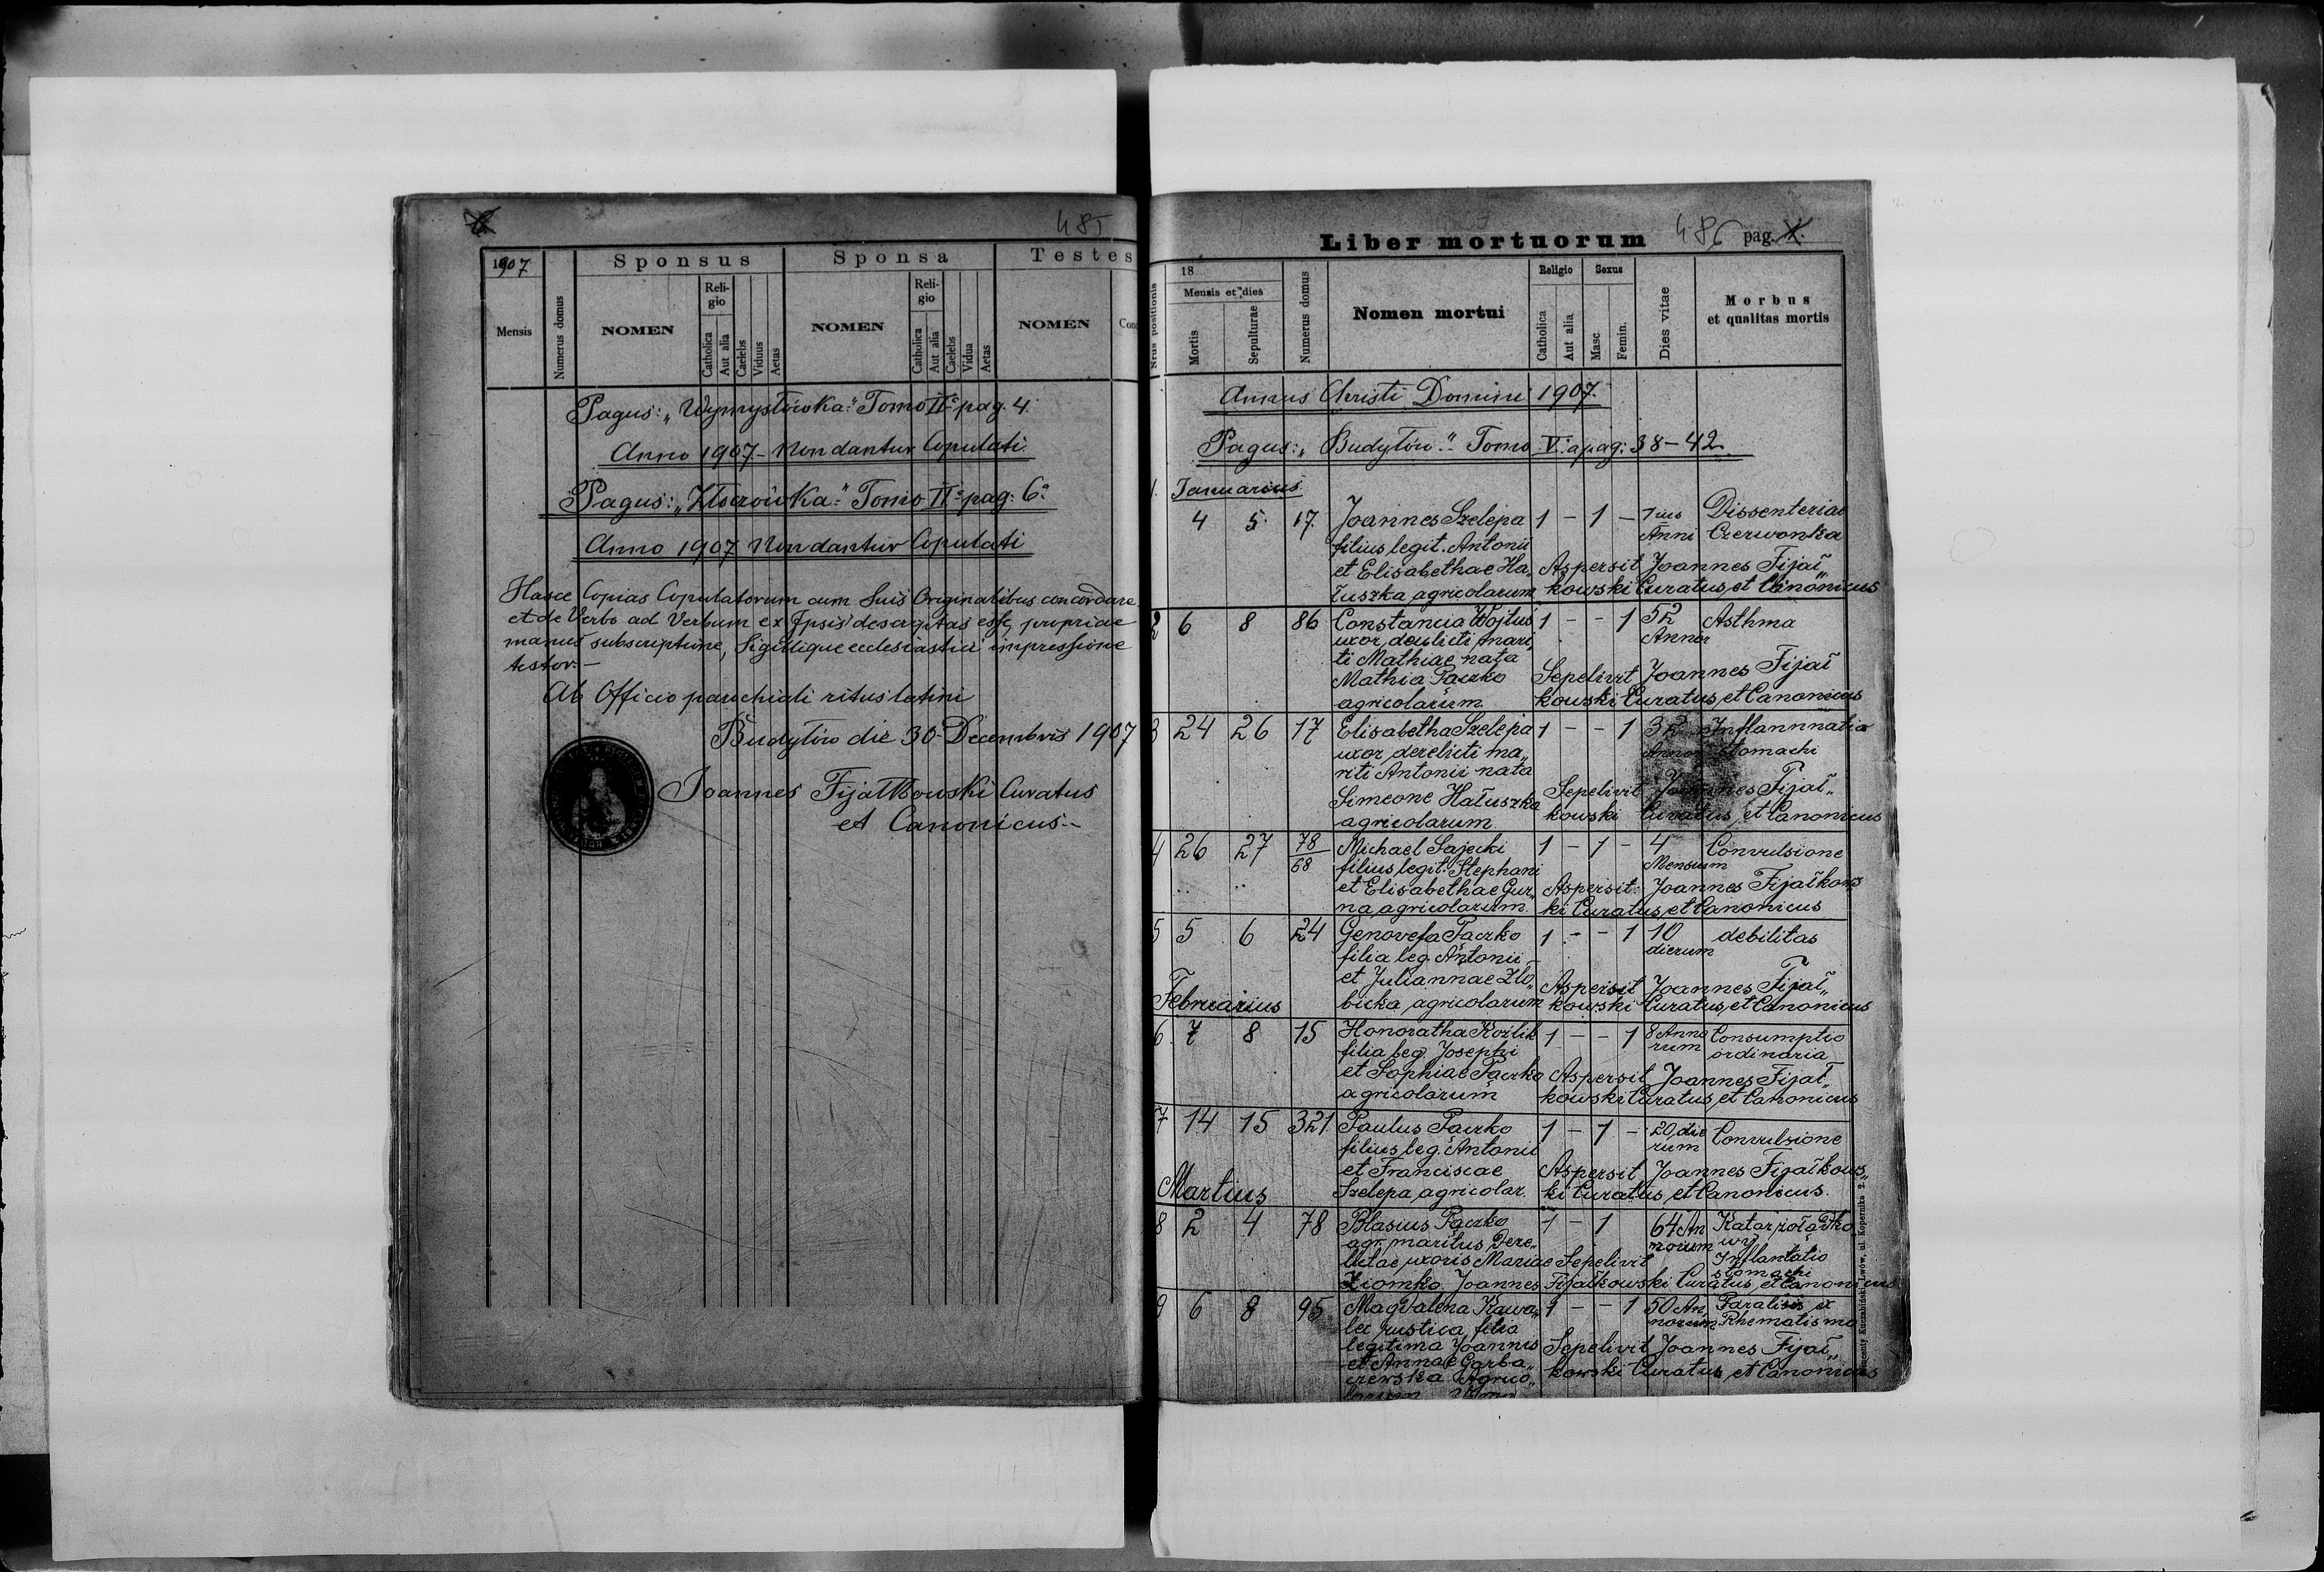 485
1907
Sponsus
Sponsa
Testes
Mensis
Numerus domus
NOMEN
Reli-
gio
Catholica
Aut alia
Caelebs
Viduus
Aetas
NOMEN
Reli-
gio
Catholica
Aut alia
Caelebs
Vidua
Aetas
NOMEN
Con
Pagus: „Wymysłówka" Tomo II pag. 4.
Anno 1907 - Non dantur Copulati
Pagus: „Złoczówka" Tomo II pag: 6.
Anno 1907 Non dantur Copulati
Hasce Copias Copulatorum cum Suis Originalibus concordare
et de Verbo ad Verbum ex Ipsis descriptas esse, propriae
manus subscriptione, Sigillique ecclesiastici impressione
testor.-
Ab Officio parochiali ritus latini
Budyłów die 30 Decembris 1907
Joannes Fijałkowski Curatus
et Canonicus-
Liber mortuorum 486 pag. 1.
Nrus positionis
18
Mensis et dies
Mortis
Sepulturae
Numerus domus
Nomen mortui
Religio
Catholica
Aut alia
Sexus
Masc.
Femin.
Dies vitae
Morbus
et qualitas mortis
Annus Christi Domini 1907.
Pagus: „Budyłów" Tomo V. a pag: 38-42.
1. Januarius
4 5. 17. Joannes Szelepa 1 - 1 - Dissenteria
filius legit. Antonii Anni Czerwonka
et Elisabethae Ha„ Aspersit Joannes Fijał„
łuszka agricolarum kowski Curatus et Canonicus
2 6 8 86 Constancia Wojtuś 1 - - 1 52 Asthma
uxor derelicti mari„ Annor
ti Mathiae nata
Mathia Paczko Sepelivit Joannes Fijał
agricolarum kowski Curatus, et Canonicus
3 24 26 17 Elisabetha Szelepa 1 - - 1 32 Inflannnatia
uxor derelicti ma„ Annor Stomachi
riti Antonii nata
Simeone Hałuszka Sepelivit Joannes Fijał„
agricolarum kowski Curatus, et Canonicus
4 26 27 78/68 Michael Sajecki 1 - 1 - 4 Convulsione
filius legit. Stephani Mensium
et Elisabethae Gur„ Aspersit: Joannes Fijałkows
na, agricolarum. ki Curatus, et Canonicus
5 5 6 24 Genovefa Paczko 1 - - 1 10 debilitas
filia leg. Antonii dierum
et Juliannae Zło„ Aspersit Joannes Fijał„
Februarius bicka, agricolarum kowski Curatus, et Canonicus
6. 7 8 15 Honoratha Kozlik 1 - - 1 8 Anno Consumptio
filia leg. Josephi rum ordinaria
et Sophiae Paczko Aspersit Joannes Fijał„
agricolarum kowski Curatus, et Canonicus
7 14 15 321 Paulus Paczko 1 - 1 - 20 die Convulsione
filius leg. Antonii rum
et Franciscae Aspersit Joannes Fijałkows„
Martius Szelepa, agricolar. ki Curatus, et Canonicus.
8 2 4 78 Blasius Paczko 1 - 1 64 An Katar żołądko
agr. maritus Dere„ norum wy
lictae uxoris Mariae Sepelivit Inflantatio
stomachi
Ziomko Joannes Fijałkowski Curatus, et Canonicus
9 6 8 95 Magdalena Kawa„ 1 - - 1 50 An Paralisis ex
lec rustica, filia norum Rhematismo
legitima Joannis Sepelivit Joannes Fijał„
et Annae Garba„ kowski Curatus, et Canonicus
czewska Agrico„
Kuczabiński, Lwów, ul. Kopernika 2.